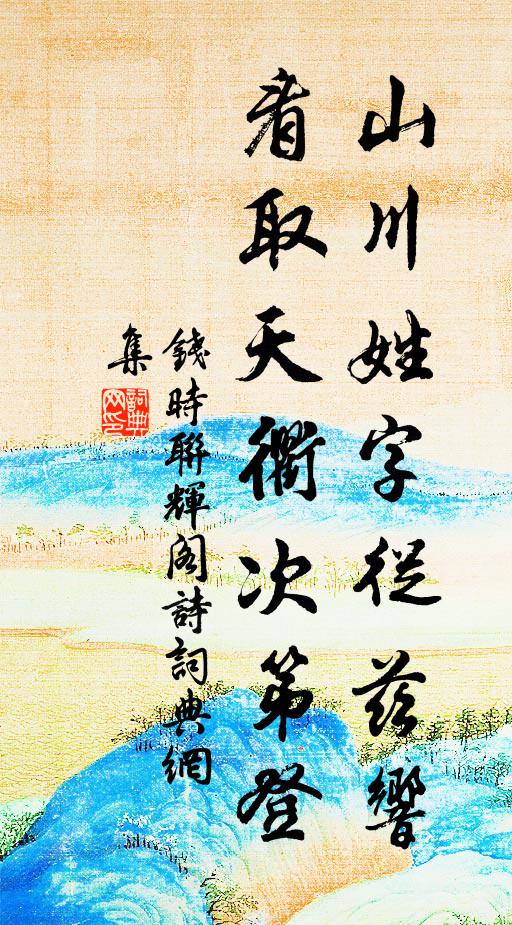 山川姓字從茲響
看取天衢次第登
錢時聯輝阁詩詞典網
集
詞典
网印